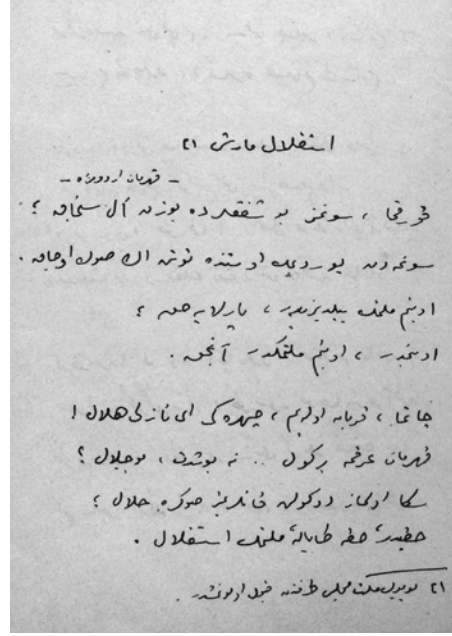 استقلال مارشی ٢١
- قهرمان اردومزه -
قورقما ، سونمز بو شفقلرده یوزن آل سنجاق ؛
سونمه‌دن یوردیمك اوستنده توتن اڭ صوڭ اوجاق .
او بنم ملتمڭ ییلدیزیدر ، پارلایه‌جق ؛
او بنمدر ، او بنم ملتمڭدر آنجق .
چاتما ، قربان اوله‌یم ، چهره‌ڭی ای نازلی هلال !
قهرمان عرقمه بر كول .. نه بو شدت ، بو جلال ؟
سڭا اولماز دوكولن قانلریمز صوڭره حلال ؛
حقیدر حقه طاپان ملتمڭ استقلال .
٢١ بویوك ملت مجلسی طرفندن قبول اولونمشدر .